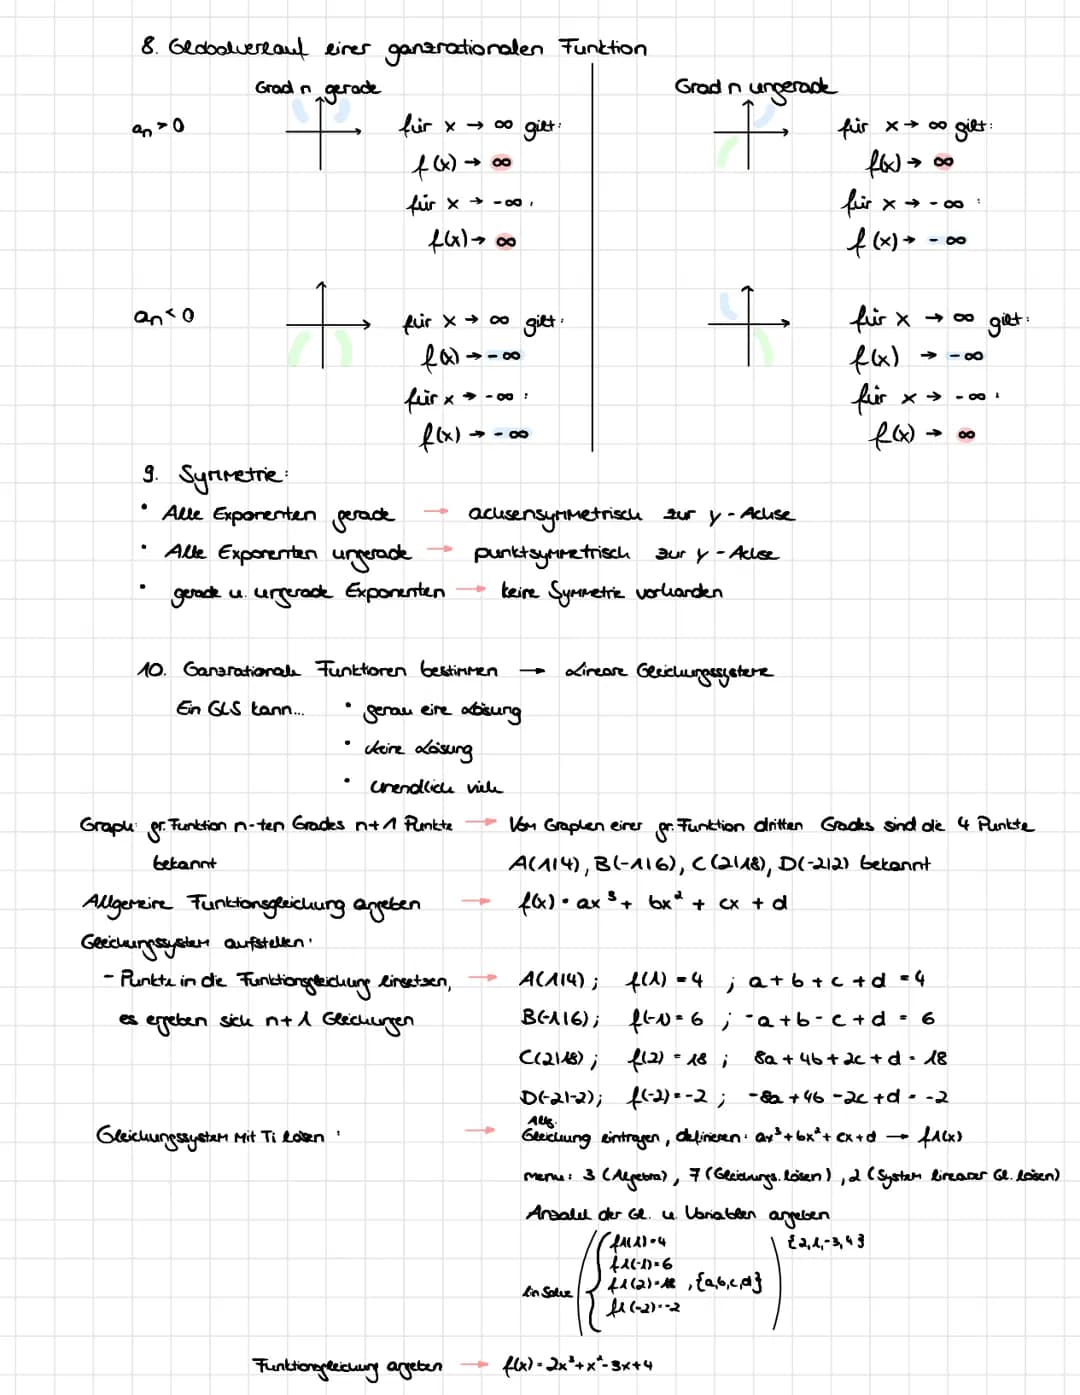 8. Globalverlauf einer ganzrationalen Funktion
Grad n gerade
Grad n ungerade
an > 0
für x → ∞ gilt:
f(x) → ∞
für x → -∞:
f(x) → ∞
für x → ∞ gilt:
f(x) → ∞
für x → -∞:
f(x) → -∞
an < 0
für x → ∞ gilt:
f(x) → -∞
für x → -∞:
f(x) → -∞
für x → ∞ gilt:
f(x) → -∞
für x → -∞:
f(x) → ∞
9. Symmetrie:
• Alle Exponenten gerade → achsensymmetrisch zur y-Achse
• Alle Exponenten ungerade → punktsymmetrisch zur y-Achse
• gerade u. ungerade Exponenten → keine Symmetrie vorhanden
10. Ganzrationale Funktionen bestimmen → Lineare Gleichungssysteme
Ein GLS kann... • genau eine Lösung
• keine Lösung
• unendlich viele
Graph gr. Funktion n-ten Grades n+1 Punkte → Vom Graphen einer gr. Funktion dritten Grades sind die 4 Punkte
bekannt A(1|4), B(-1|6), C(2|18), D(-2|2) bekannt
Allgemeine Funktionsgleichung angeben → f(x) = ax³ + bx² + cx + d
Gleichungssystem aufstellen:
- Punkte in die Funktionsgleichung einsetzen, → A(1|4); f(1) = 4 ; a + b + c + d = 4
es ergeben sich n+1 Gleichungen B(-1|6); f(-1) = 6 ; -a + b - c + d = 6
C(2|18); f(2) = 18 ; 8a + 4b + 2c + d = 18
D(-2|-2); f(-2) = -2 ; -8a + 4b - 2c + d = -2
Allg.
Gleichungssystem mit Ti lösen: → Gleichung eintragen, definieren: ax³ + bx² + cx + d → f1(x)
menu: 3 (Algebra), 7 (Gleichungs. lösen), 2 (System linearer Gl. lösen)
Anzahl der Gl. u. Variablen angeben
f1(1)=4 {2,1,-3,4}
f1(-1)=6
linSolve f1(2)=18 , {a,b,c,d}
f1(-2)=-2
Funktionsgleichung angeben → f(x) = 2x³ + x² - 3x + 4